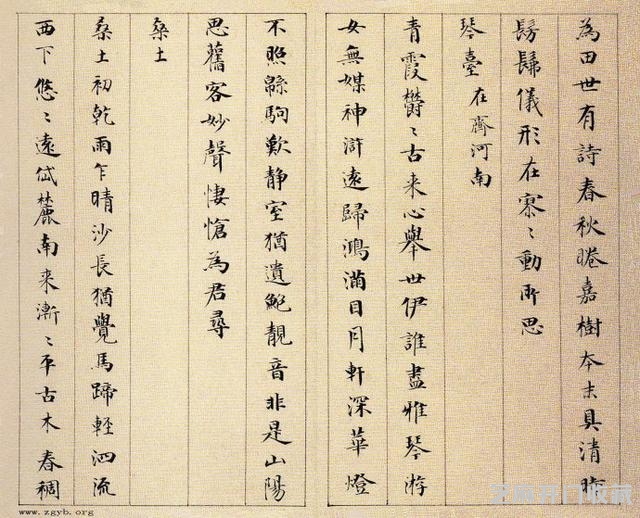 為田世有詩春秋睠嘉樹本末具清時
髣髴儀形在寮〻動所思
琴臺在齊河南
青霞欝〻古来心舉世伊誰盡雅琴游
女無媒神滸遠歸鴻滿目月軒深華燈
不照緜駒歎静室猶遺鮑靚音非是山陽
思舊客妙聲悽愴為君尋
桑土
桑土初乾雨乍晴沙長猶覺馬蹄軽泗流
西下悠〻遠岱麓南来漸〻平古木春稠
www.zgyb.org